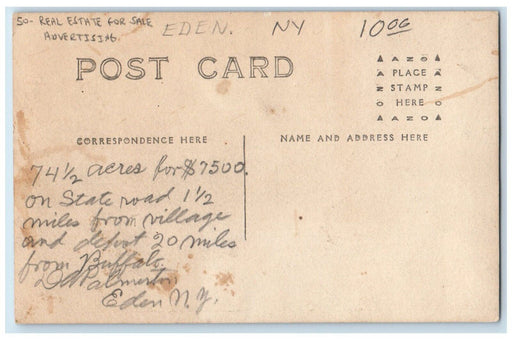 50- REAL ESTATE FOR SALE
ADVERTISING.
EDEN. NY 10 00
POST CARD
AZO
PLACE
STAMP
HERE
AZO
CORRESPONDENCE HERE
NAME AND ADDRESS HERE
74 1/2 acres for $7500.
on State road 1 1/2
miles from village
and depot 20 miles
from Buffalo.
Palmerton
Eden N.Y.